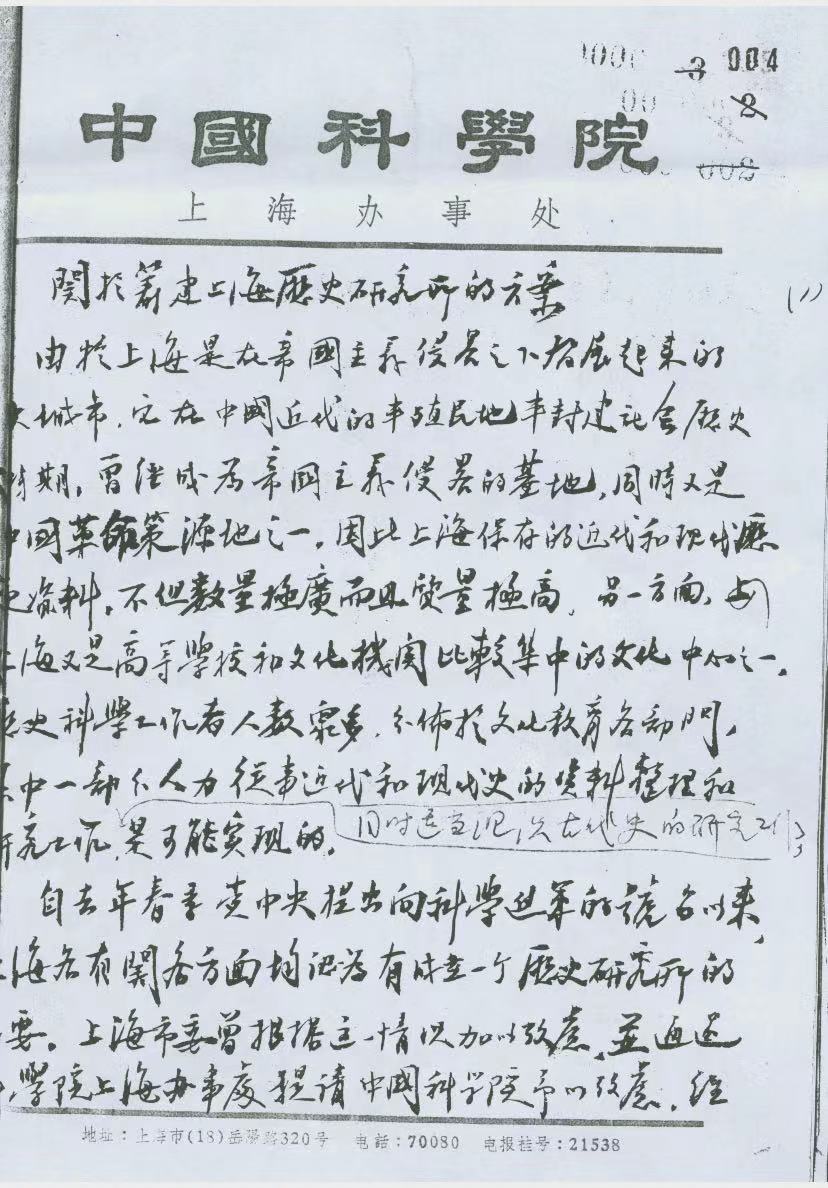 004
3
2
002
中國科學院
上海办事处
(1)
關於籌建上海歷史研究所的方案
由於上海是在帝國主義侵畧之下發展起來的
大城市，它在中國近代的半殖民地半封建社会歷史
時期，曾經成為帝國主義侵畧的基地，同時又是
中國革命策源地之一，因此上海保存的近代和現代歷
史資料，不但数量極廣而且質量極高，另一方面，由於
上海又是高等學校和文化機関比較集中的文化中心之一，
歷史科學工作者人数衆多，分佈於文化教育各部門，
集中一部分人力從事近代和現代史的資料整理和
研究工作，是可能实現的。
同时适当照顾古代史的研究工作，
自去年春季党中央提出向科學進軍的號召以來，
上海各有關各方面均認為有成立一个歷史研究所的
要。上海市委曾根据这一情况加以致意，並通过
學院上海办事處提請中國科学院予以致意，経
地址：上海市(18)岳陽路320号 电話：70080 电报挂号：21538